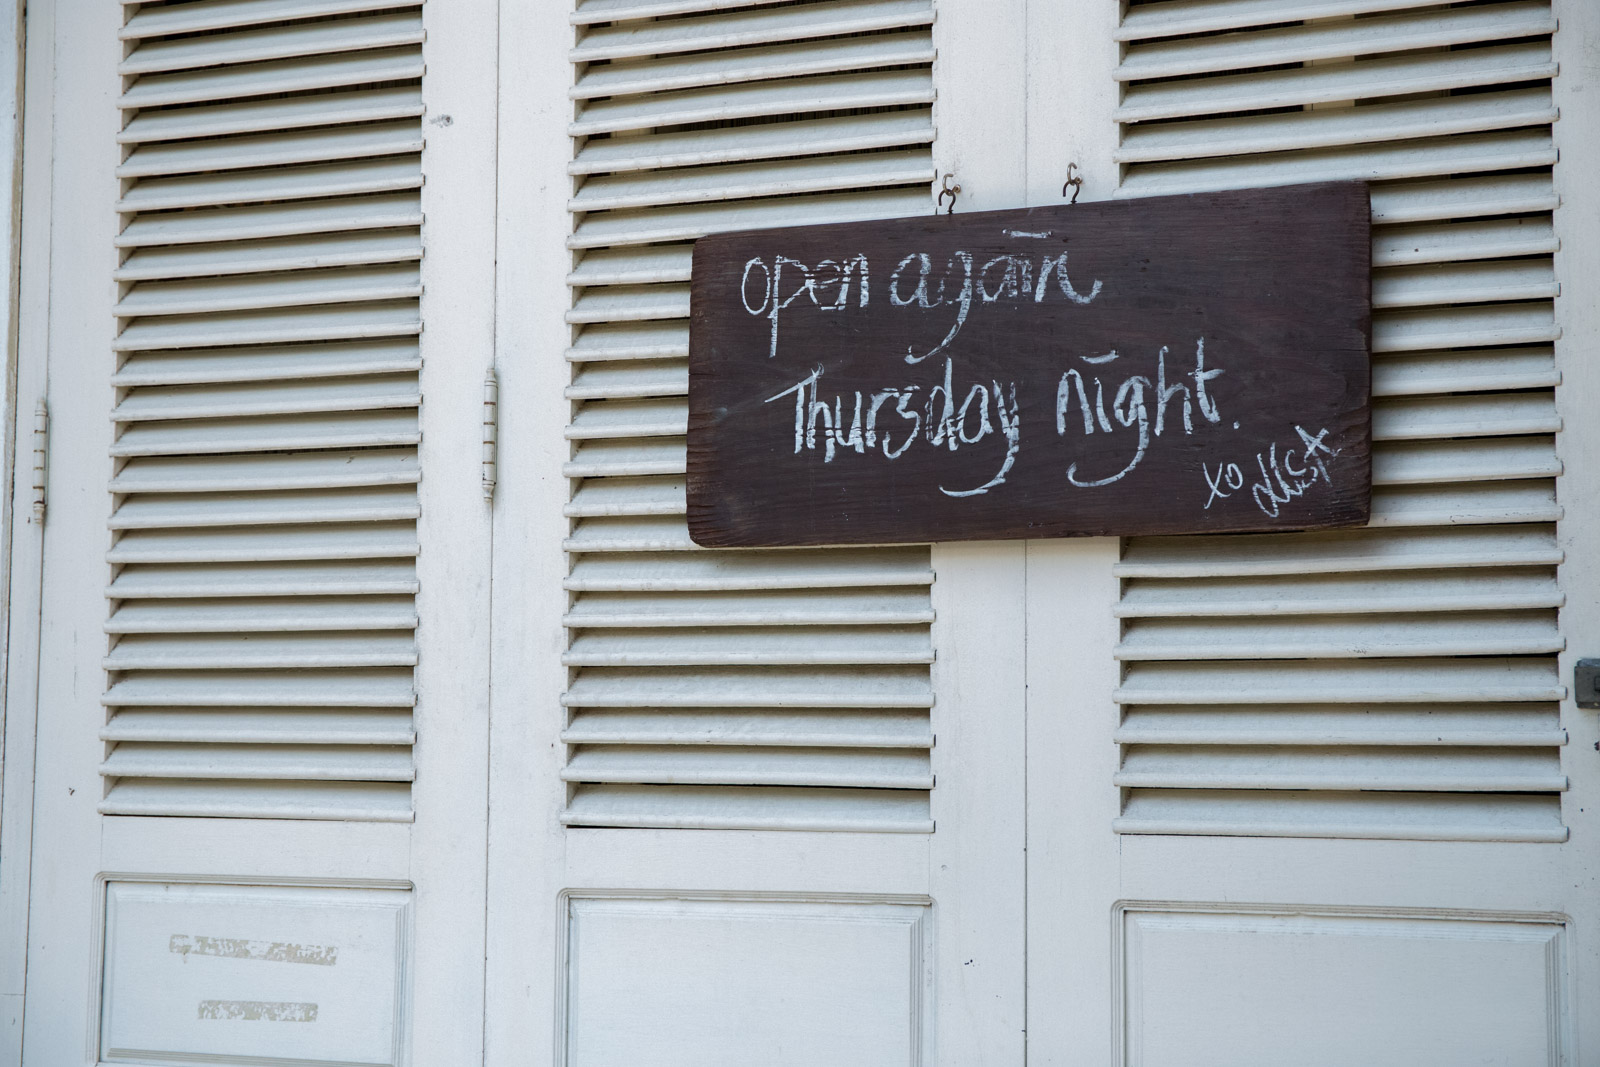 open again
Thursday night.
xo